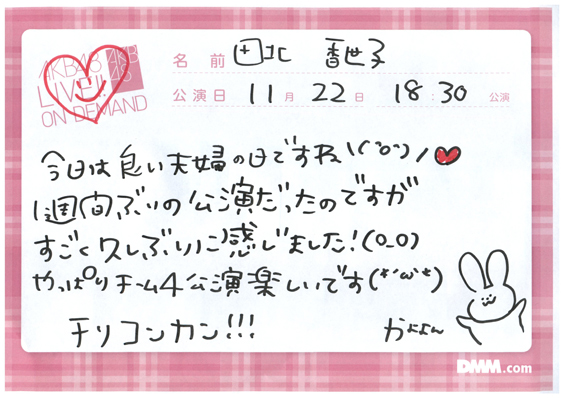 AKB48
LIVE!!
ON DEMAND
AKB
48
名 前 田北 香世子
公演日 11月 22日 18:30 公演
今日は良い夫婦の日ですね\(^o^)/♥
1週間ぶりの公演だったのですが
すごく久しぶりに感じました!(0_0)
やっぱりチーム4公演楽しいです(*´ω`*)
チリコンカン!!!
かよよん
DMM.com